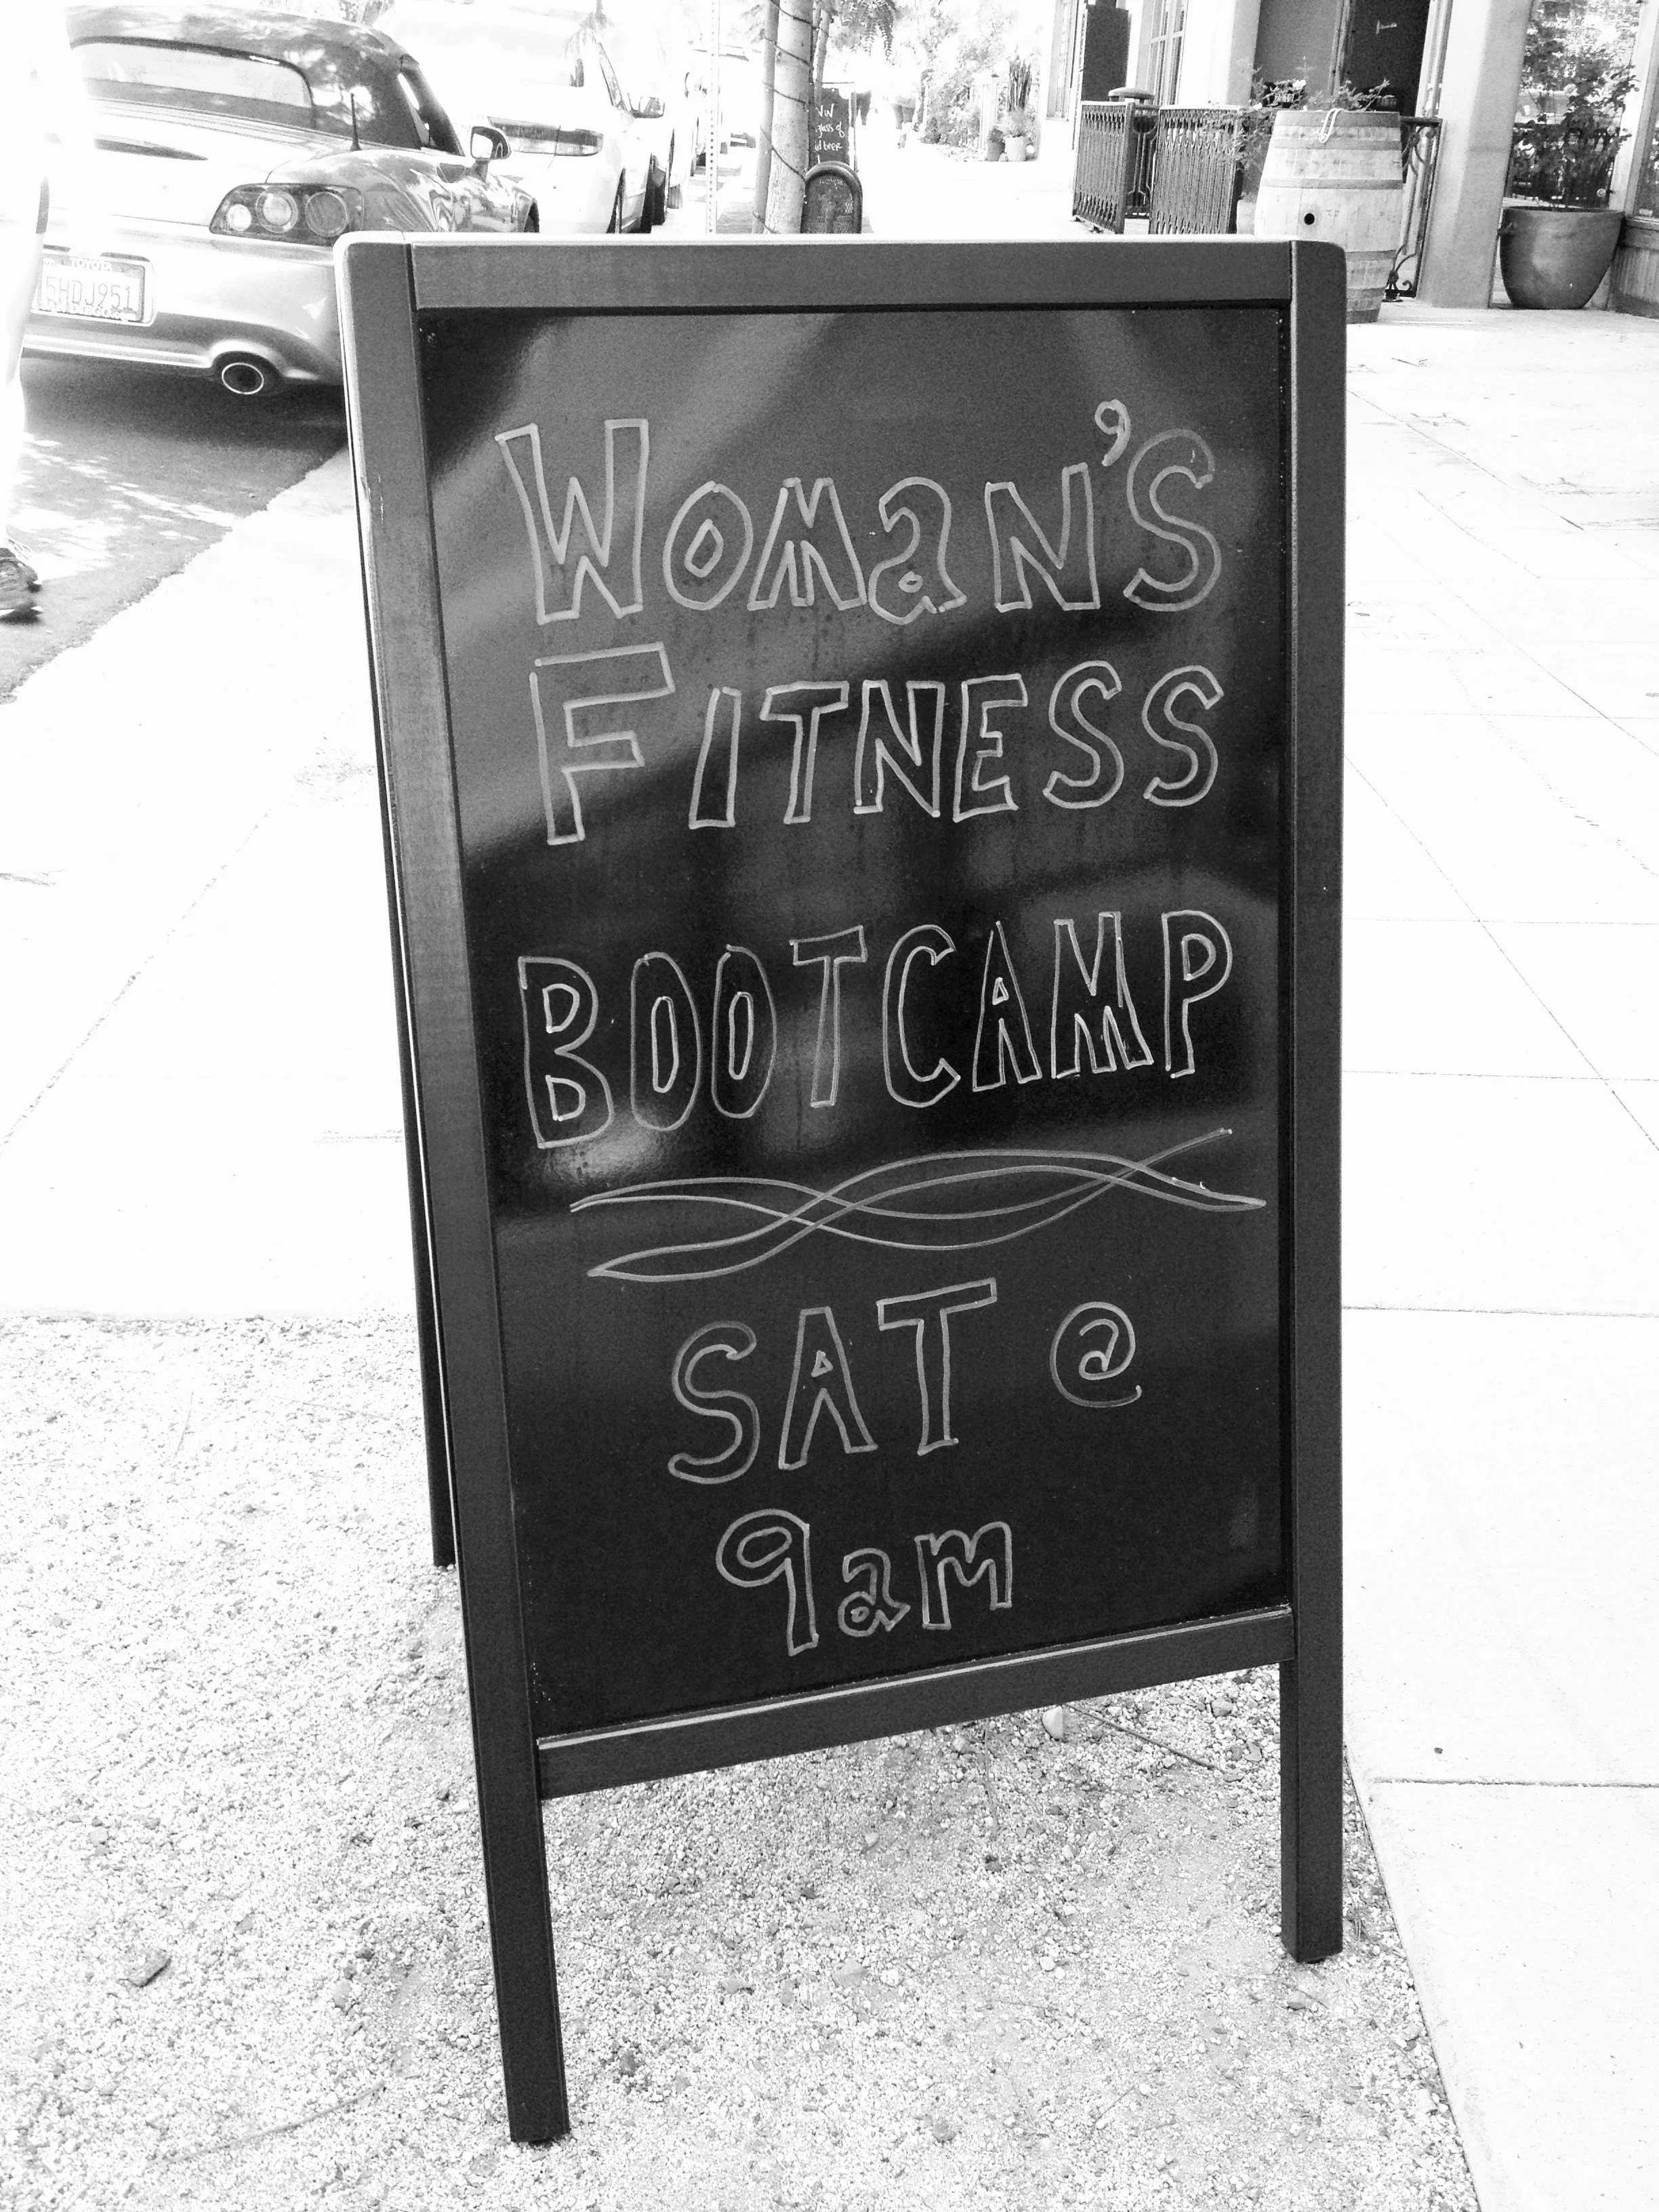 WOMaN'S
FITNESS
BOOTCAMP
SAT @
9am
TOYOTA
5HDJ951